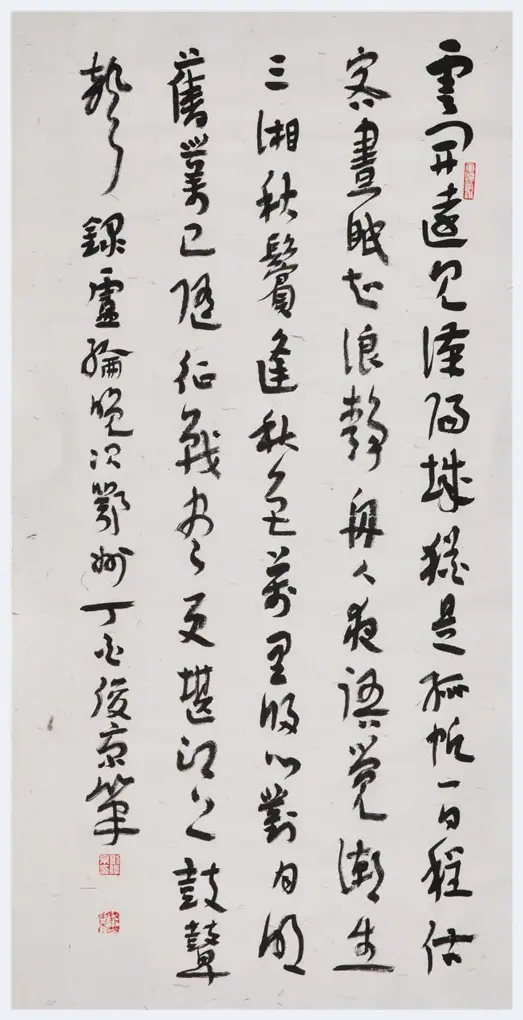 雲開遠見漢陽城猶是孤帆一日程估
客晝眠知浪靜舟人夜語覺潮生
三湘秋鬢逢秋色萬里歸心對月明
舊業已隨征戰盡更堪江上鼓鼙
聲 錄盧綸晚次鄂州丁酉俊京筆